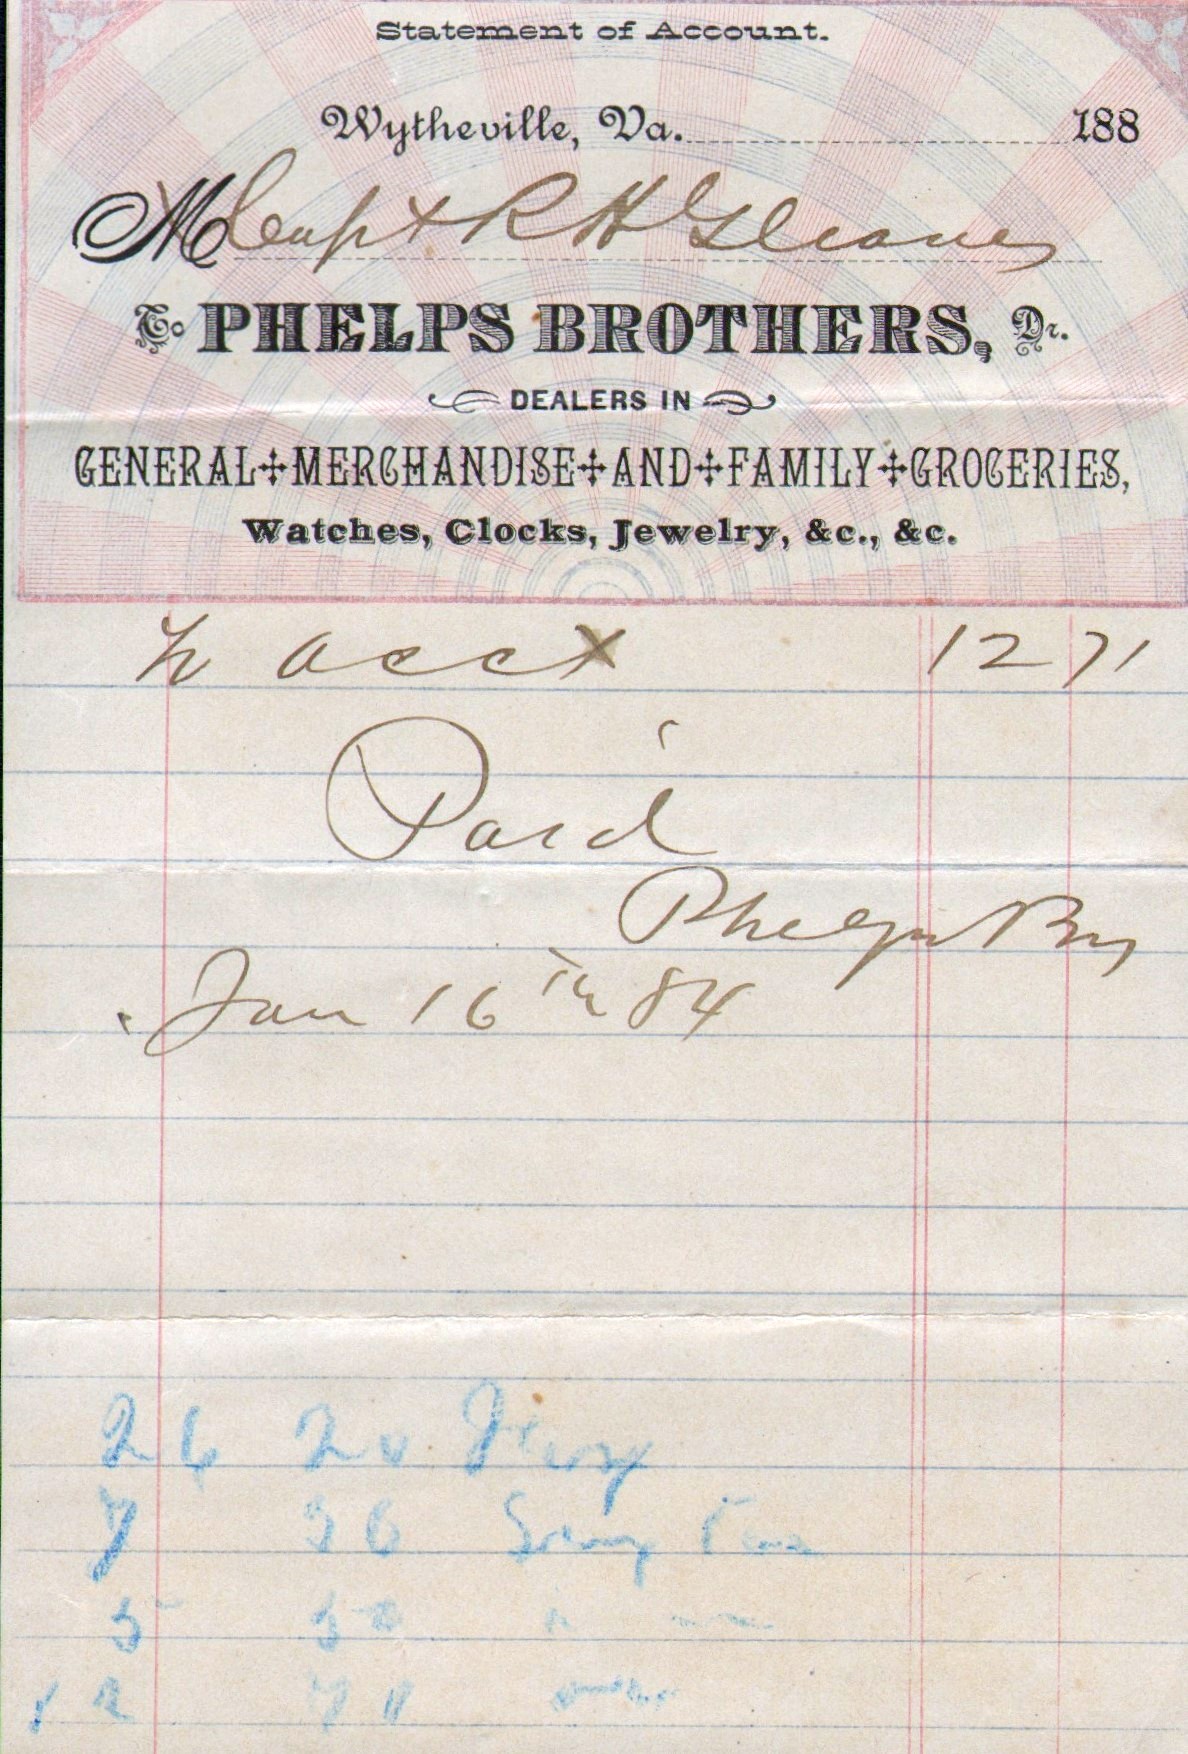 Statement of Account.
Wytheville, Va. 188
M Capt R H Gleaves
To PHELPS BROTHERS, Dr.
DEALERS IN
GENERAL MERCHANDISE AND FAMILY GROCERIES,
Watches, Clocks, Jewelry, &c., &c.
To acct 12 71
Paid
Phelps Bros
Jan 16th 84
26 20
7 36
5
12 71